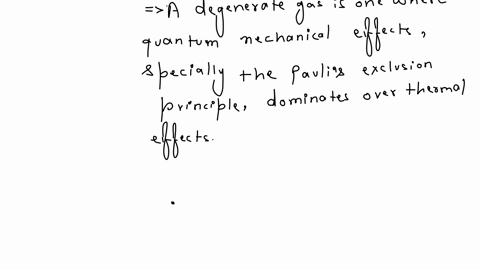 => A degenerate gas is one where
quantum mechanical effects,
specially the Paulis exclusion
principle, dominates over thermal
effects.